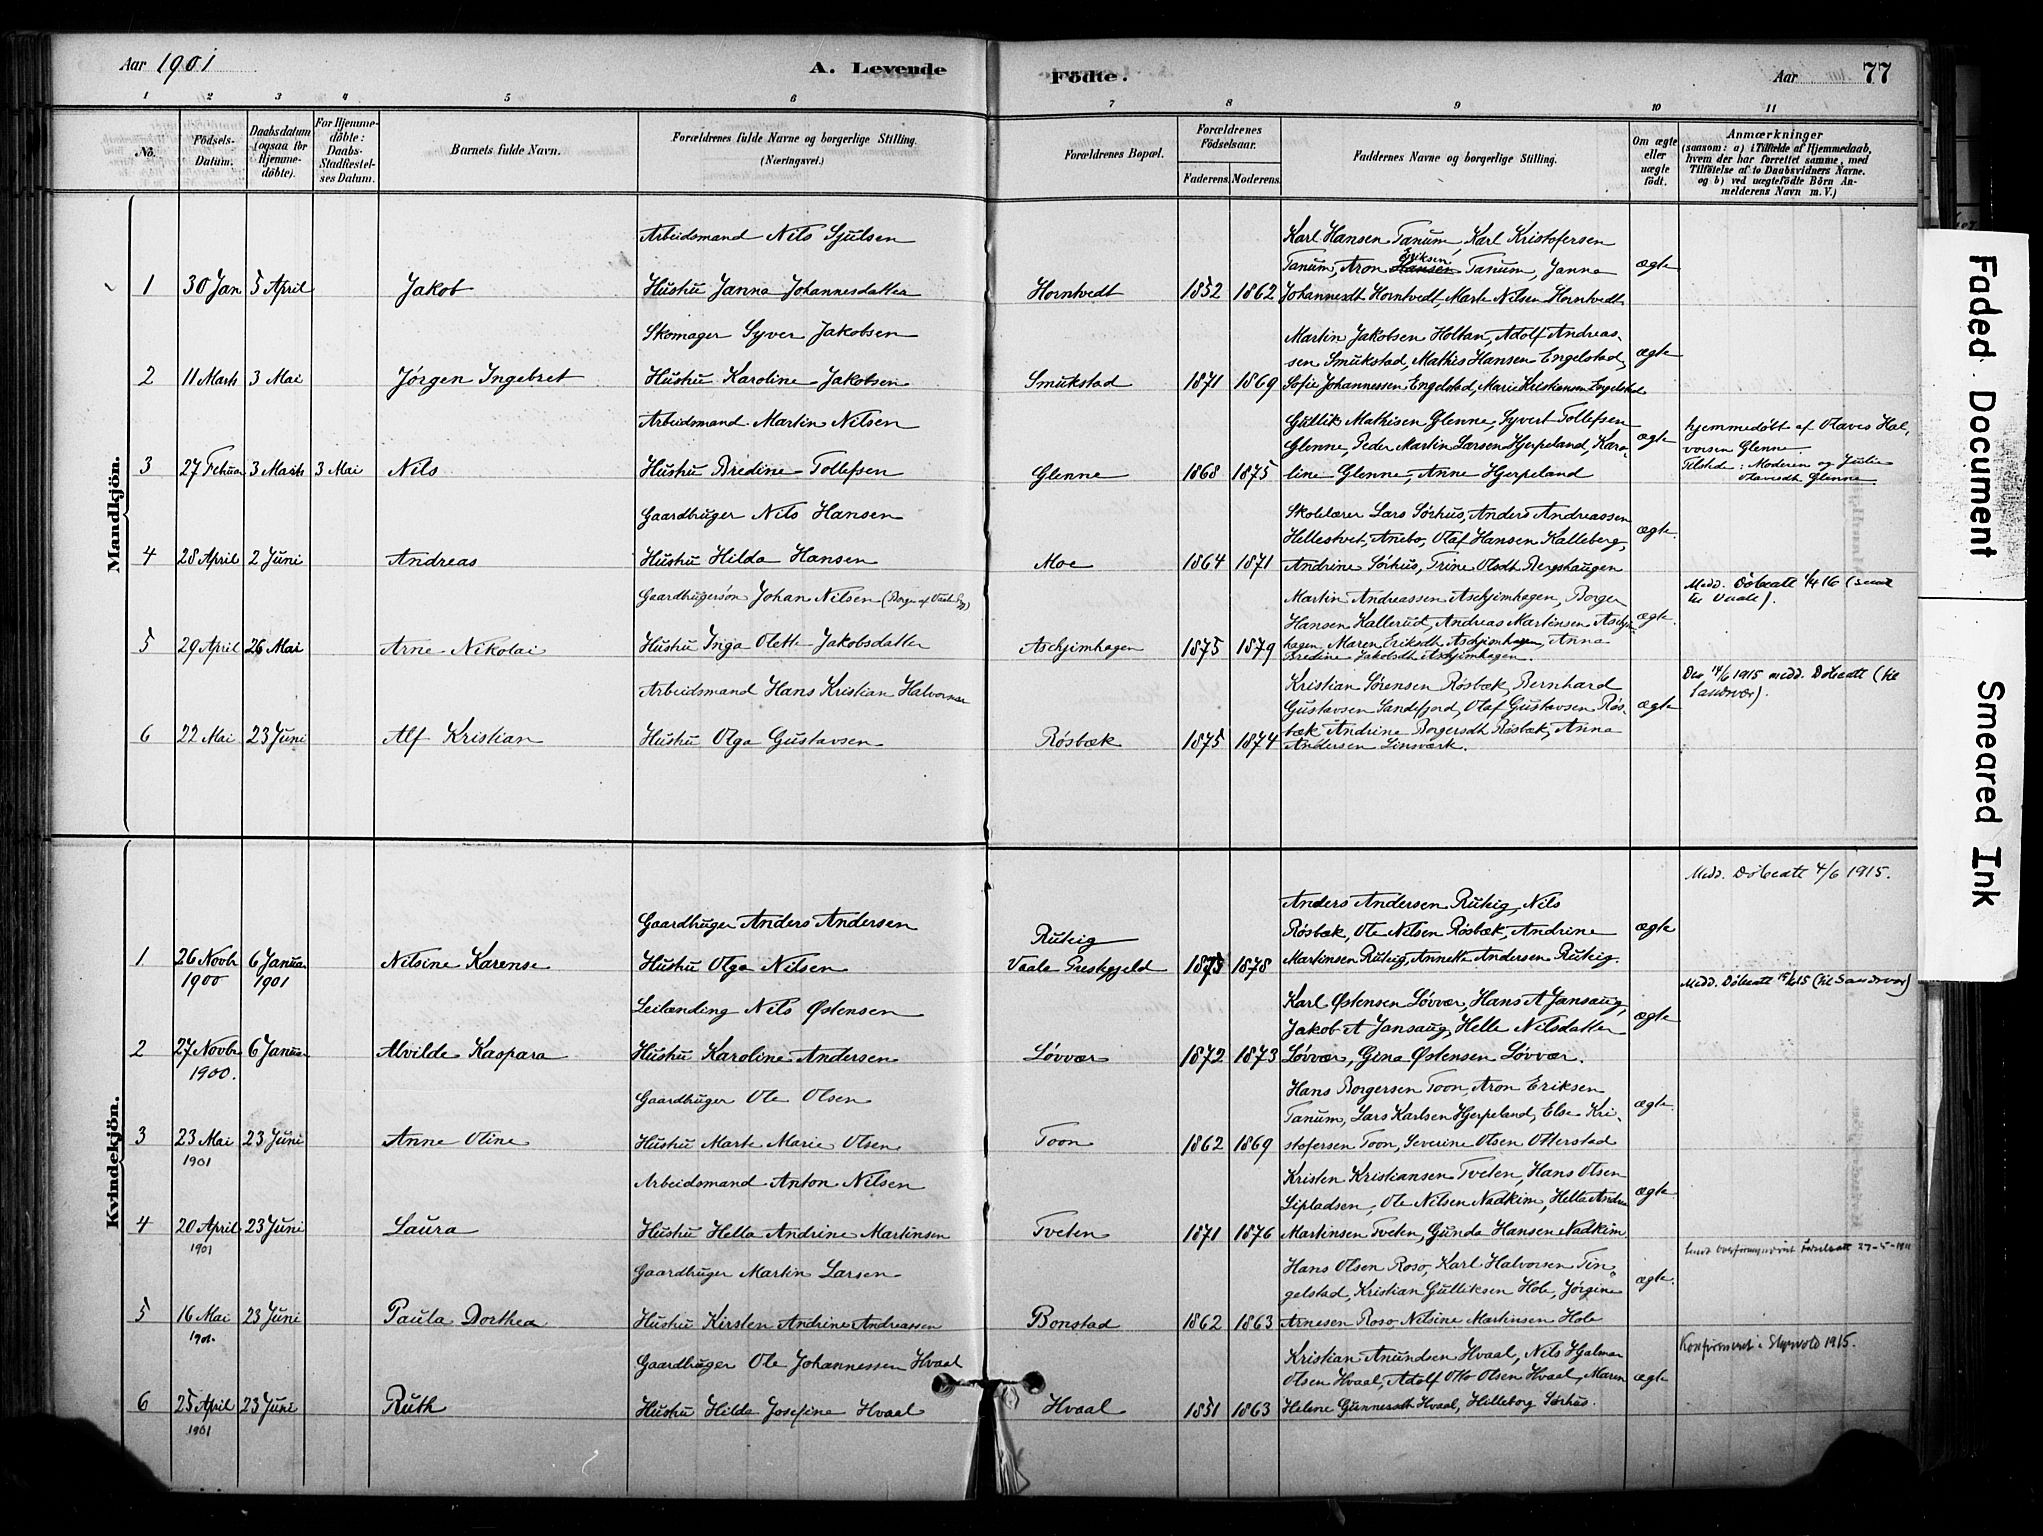 Aar 1901
A. Levende Födte.
Aar 77
1 2 3 4 5 6 7 8 9 10 11
No.
Födsels-Datum.
Daabsdatum (ogsaa for Hjemme-döbte).
For Hjemme-döbte: Daabs-Stadfestel-ses Datum.
Barnets fulde Navn.
Forældrenes fulde Navne og borgerlige Stilling. (Næringsvei.)
Forældrenes Bopæl.
Forældrenes Födselsaar.
Faderens. Moderens.
Faddernes Navne og borgerlige Stilling.
Om ægte eller uægte födt.
Anmærkninger
(saasom: a) i Tilfælde af Hjemmedaab,
hvem der har forrettet samme, med
Tilföielse af to Daabsvidners Navne.
og b) ved uægtefödte Börn An-
melderens Navn m. V.)
Mandkjön.
Arbeidsmand Nils Sjulsen
Karl Hansen Tanum, Karl Kristofersen
Tanum, Aron Hansen Eriksen Tanum, Janna
ægte
1 30 Jan 5 April Jakob Hustru Janna Johannesdatter Horntvedt 1852 1862 Johannesdt Horntvedt, Marte Nilsen Horntvedt
Skomager Syver Jakobsen
Martin Jakobsen Holtan, Adolf Andreas-
sen Smukstad, Mathis Hansen Engelstad,
ægte
2 11 Marts 3 Mai Jørgen Ingebret Hustru Karoline Jakobsen Smukstad 1871 1869 Sofie Johannessen Engelstad, Marie Kristiansen Engelstad
Arbeidsmand Martin Nilsen
Gullik Mathisen Glenne, Syvert Tollefsen
Glenne, Peder Martin Larsen Hjerpeland, Karo-
ægte
hjemmedøbt af Olaves Hal-
vorsen Glenne.
3 27 Februar 3 Marts 3 Mai Nils Hustru Bredine Tollefsen Glenne 1868 1875 line Glenne, Anne Hjerpeland
Tilstede: Moderen og Julie
Olavesdt Glenne.
Gaardbruger Nils Hansen
Skolelærer Lars Sørhus, Anders Andreassen
Hellestvet, Anebo, Olaf Hansen Kalleberg,
ægte.
4 28 April 2 Juni Andreas Hustru Hilda Hansen Moe 1864 1871 Andrine Sørhus, Trine Olsdt Bergshaugen
Gaardbrugersøn Johan Nilsen
Martin Andreassen Aschjimhagen, Borger
Hansen Kallerud, Andreas Martinsen Aschjim-
ægte.
Medd. Døbeatt 1/4 16 (sendt
til Vaale).
5 29 April 26 Mai Arne Nikolai Hustru Inga Olette Jakobsdatter Aschjimhagen 1875 1879 hagen, Maren Eriksdt Aschjimhagen, Anna
Bredine Jakobsdt Aschjimhagen.
Arbeidsmand Hans Kristian Halvorsen
Kristian Sørensen Røsbæk, Bernhard
Gustavsen Sandefjord, Olaf Gustavsen Røs-
ægte
Den 14/6 1915 medd. Døbeatt (til
Sandevær).
6 22 Mai 23 Juni Alf Kristian Hustru Olga Gustavsen Røsbæk 1875 1874 bæk Andrine Borgersdt Røsbæk, Anna
Andersen Linsværk.
Kvindekjön.
Medd. Døbeatt 4/6 1915.
Gaardbruger Anders Andersen
Anders Andersen Rukig, Nils
Røsbæk, Ole Nilsen Røsbæk, Andrine
ægte
1 26 Novbr 1900 6 Januar 1901 Nilsine Karense Hustru Olga Nilsen Rukig Vaale Prestegjeld 1875 1878 Martinsen Rukig, Annette Andersen Rukig.
Leilænding Nils Østensen
Karl Østensen Løvvær, Hans A Jansaug,
Jakob A Jansaug, Helle Nilsdatter
ægte
Medd. Døbeatt 15/6 15 (til Sandevær)
2 27 Novbr 1900. 6 Januar Alvilde Kaspara Hustru Karoline Andersen Løvvær 1872 1873 Løvvær, Gina Østensen Løvvær.
Gaardbruger Ole Olsen
Hans Borgersen Toon, Aron Eriksen
Tanum, Lars Karlsen Hjerpeland, Else Kri-
ægte.
3 23 Mai 1901 23 Juni Anne Oline Hustru Marte Marie Olsen Toon 1862 1869 stofersen Toon, Severine Olsen Otterstad
Arbeidsmand Anton Nilsen
Kristen Kristiansen Tveten, Hans Olsen
Lipladsen, Ole Nilsen Nadkim, Hella Andrine
ægte
4 20 April 1901 23 Juni Laura Hustru Hella Andrine Martinsen Tveten 1871 1876 Martinsen Tveten, Gunda Hansen Nadkim
Gaardbruger Martin Larsen
Hans Olsen Roso, Karl Halvorsen Tin-
gelstad, Kristian Gulliksen Hole, Jørgine
ægte.
5 16 Mai 1901. 23 Juni Paula Dorthea Hustru Kirsten Andrine Andreassen Bonstad 1862 1863 Arnesen Roso, Nilsine Martinsen Hole
Gaardbruger Ole Johannessen Hvaal
Kristian Anundsen Hvaal, Nils Hjalmar
Olsen Hvaal, Adolf Otto Olsen Hvaal, Maren
ægte
Konfirmeret i Skjevold 1915.
6 25 April 1901 23 Juni Ruth Hustru Hilda Josefine Hvaal Hvaal 1851 1863 Helene Gunnesdt Hvaal, Hilleborg Sørhus.
Faded Document
Smeared Ink